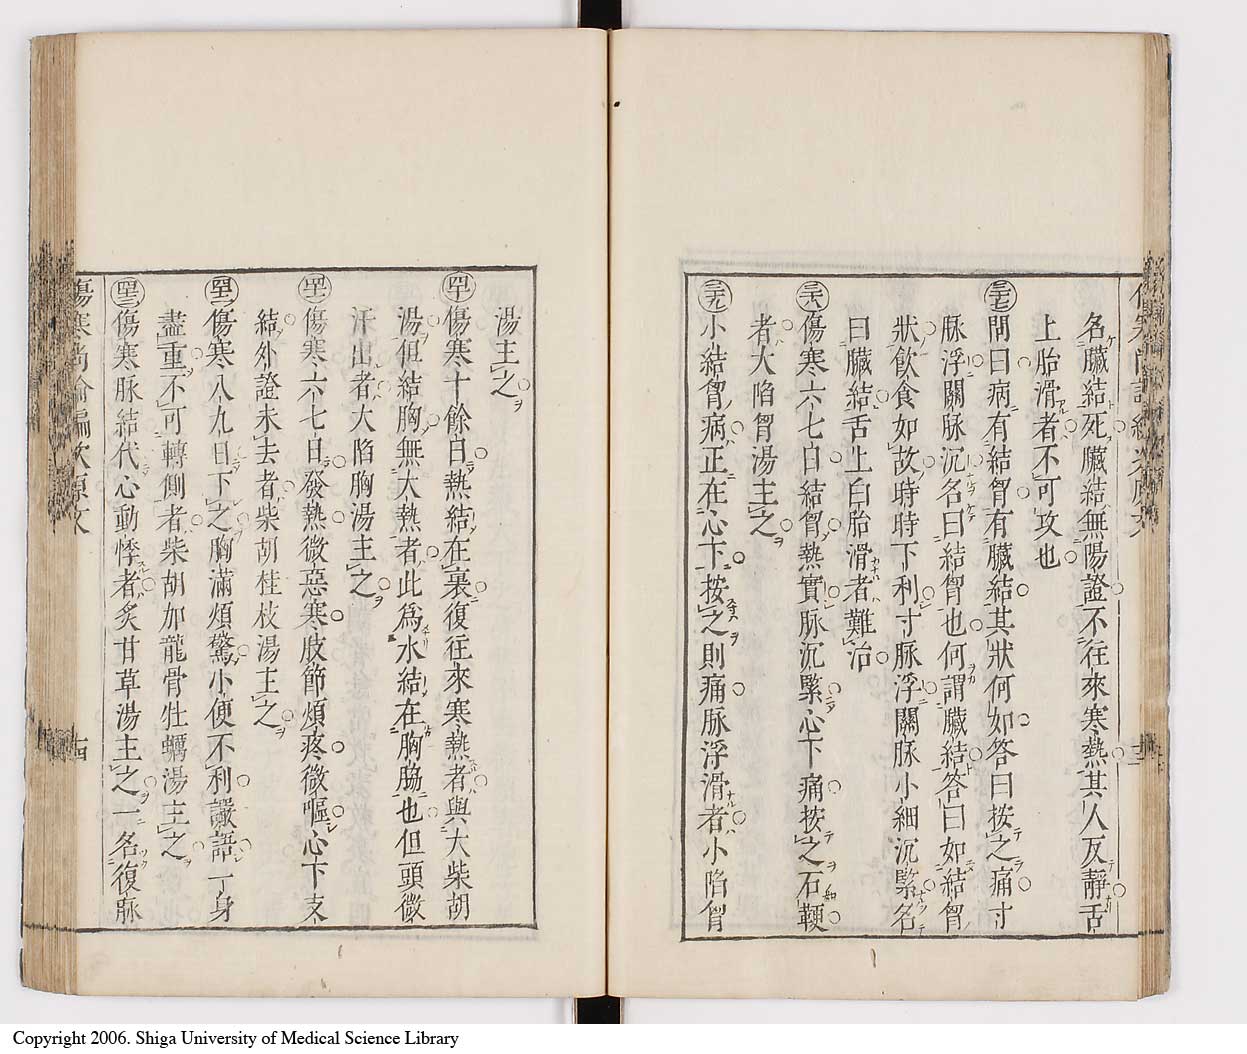 名臟結死臟結無陽證不往來寒熱其人反靜舌
上胎滑者不可攻也
三七 問曰病有結胷有臟結其狀何如答曰按之痛寸
脉浮關脉沉名曰結胷也何謂臟結答曰如結胷
狀飲食如故時時下利寸脉浮關脉小細沉緊名
曰臟結舌上白胎滑者難治
三八 傷寒六七日結胷熱實脉沉緊心下痛按之石鞕
者大陷胷湯主之
三九 小結胷病正在心下按之則痛脉浮滑者小陷胷
湯主之
四十 傷寒十餘日熱結在裏復往來寒熱者與大柴胡
湯但結胸無大熱者此爲水結在胸脇也但頭微
汗出者大陷胸湯主之
四一 傷寒六七日發熱微惡寒肢節煩疼微嘔心下支
結外證未去者柴胡桂枝湯主之
四二 傷寒八九日下之胸滿煩驚小便不利讝語一身
盡重不可轉側者柴胡加龍骨牡蠣湯主之
四三 傷寒脉結代心動悸者炙甘草湯主之一名復脉
傷寒尚論編次原文
十四
Copyright 2006. Shiga University of Medical Science Library